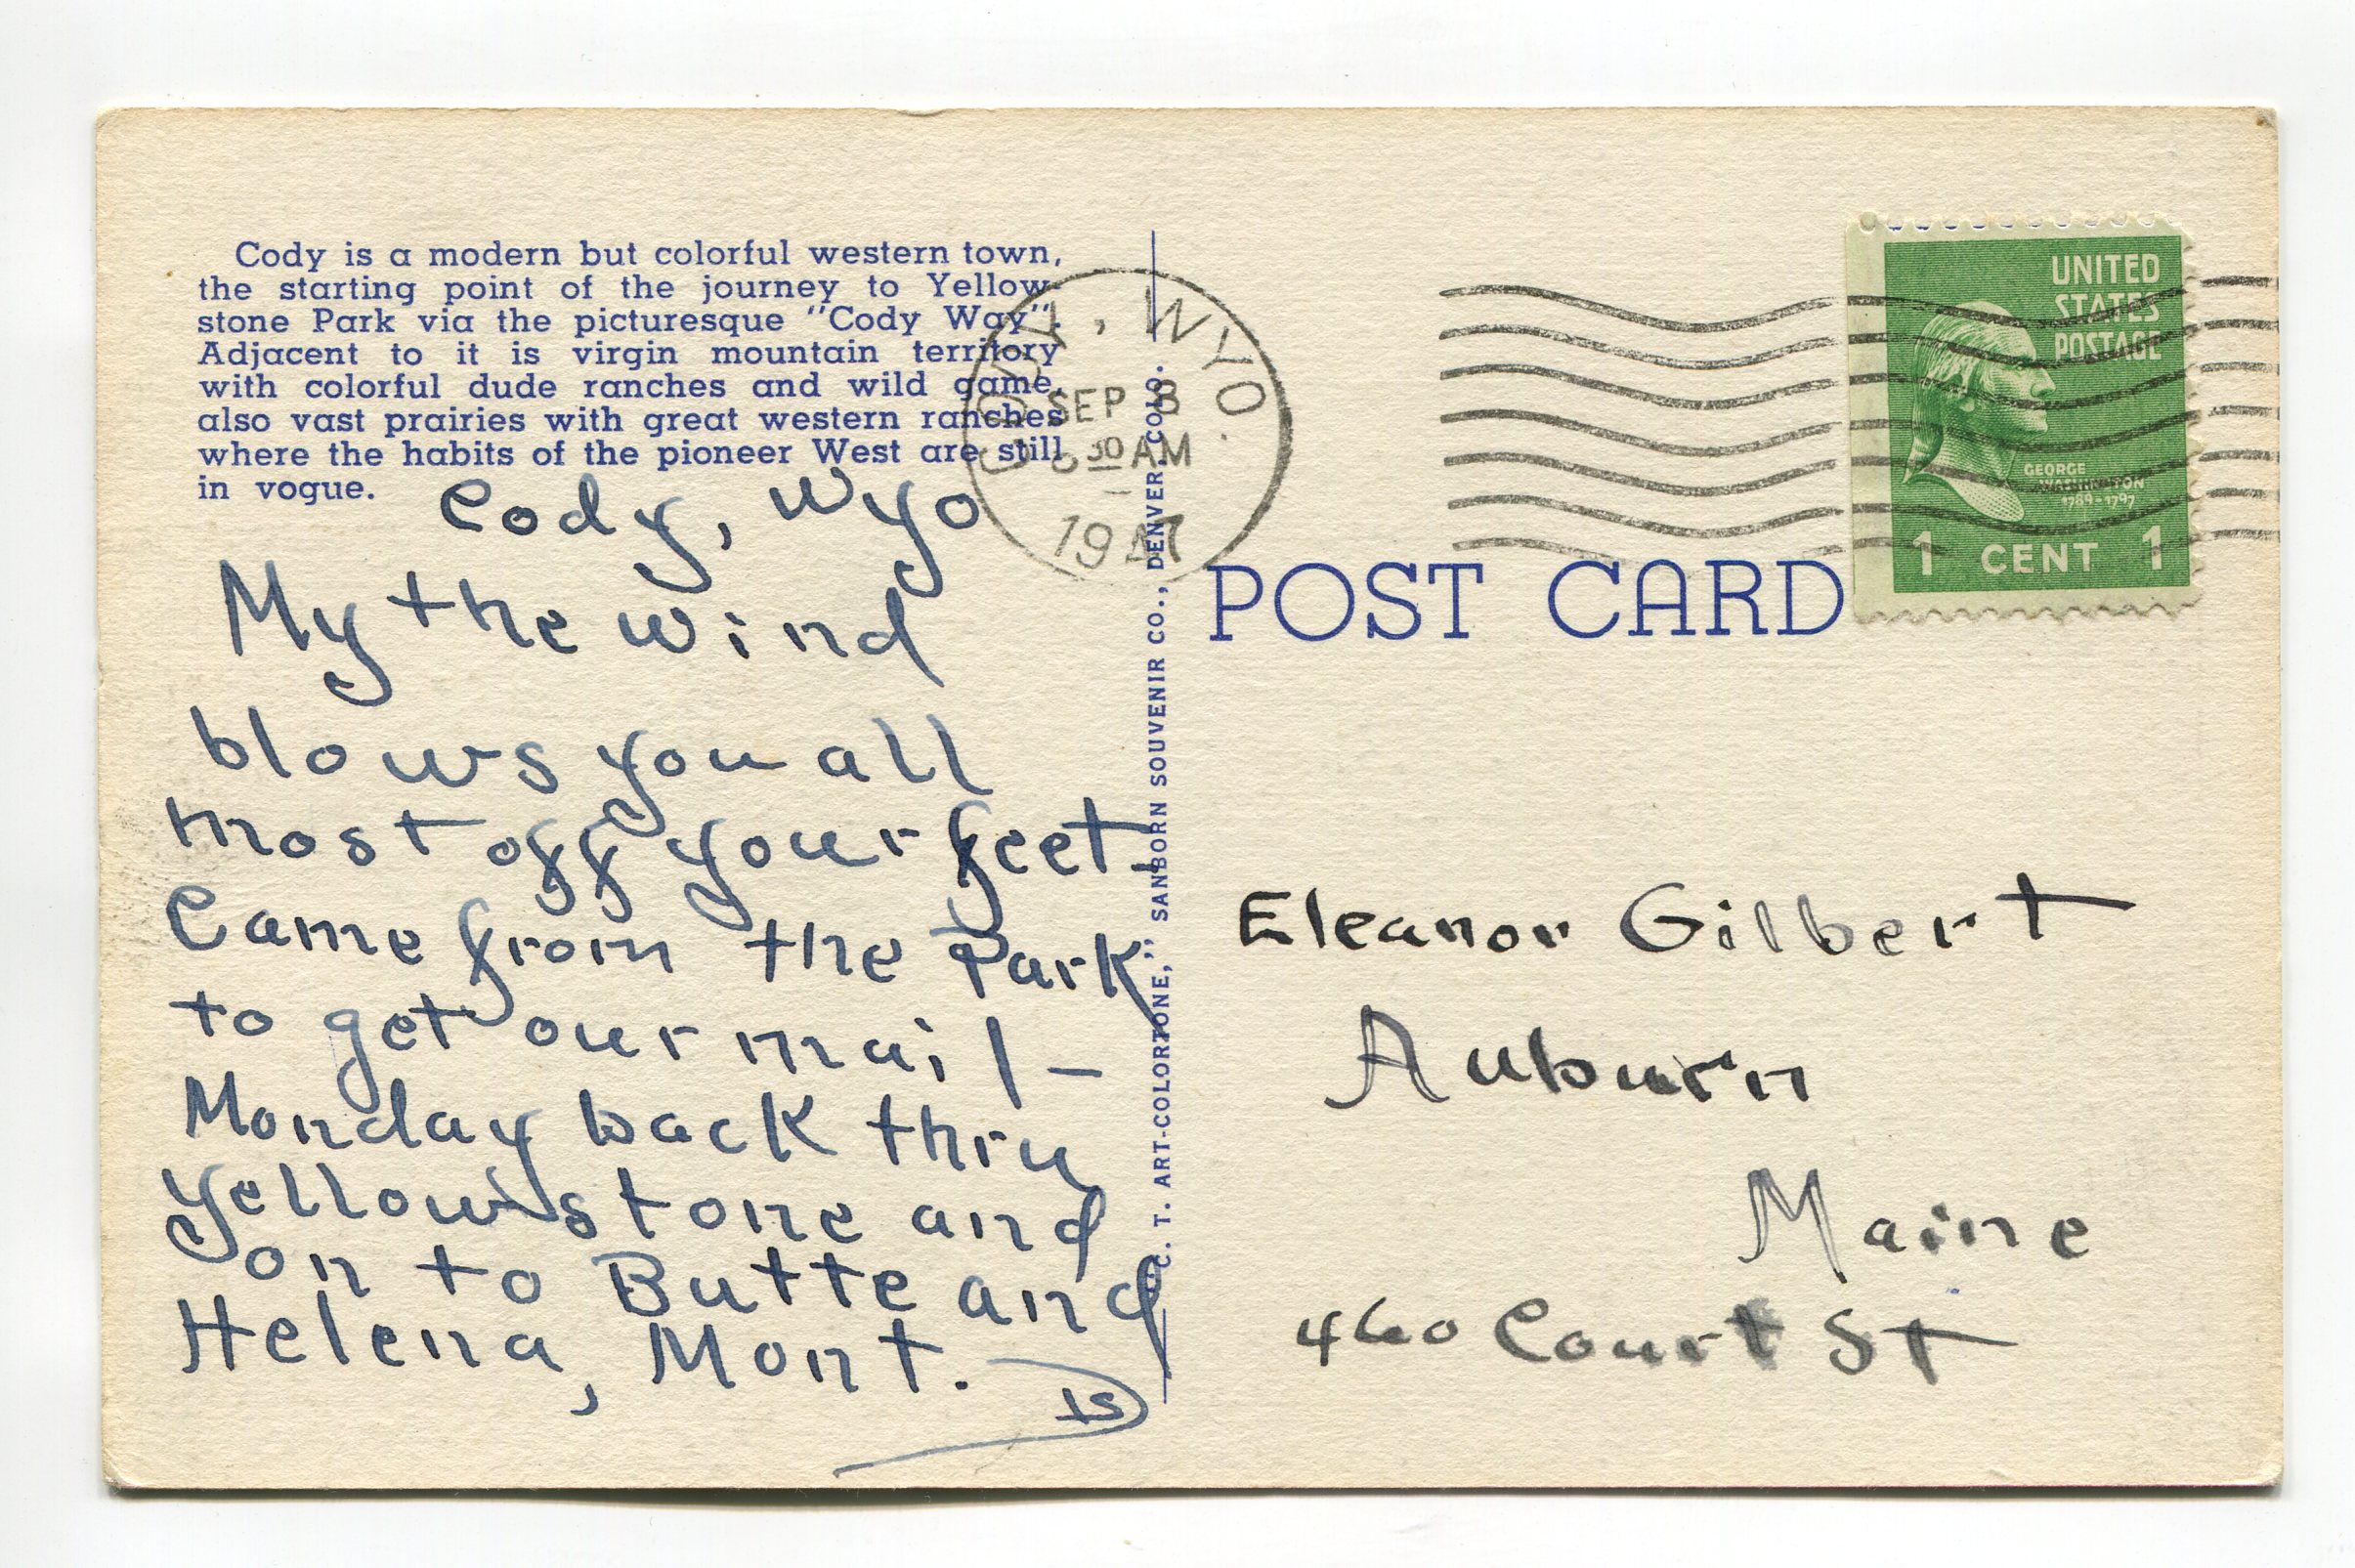 Cody is a modern but colorful western town,
the starting point of the journey to Yellow-
stone Park via the picturesque "Cody Way".
Adjacent to it is virgin mountain territory
with colorful dude ranches and wild game,
also vast prairies with great western ranches
where the habits of the pioneer West are still
in vogue.
Cody, Wyo
My the wind
blows you all
most off your feet.
Came from the Park
to get our mail –
Monday back thru
Yellowstone and
on to Butte and
Helena, Mont.
"C. T. ART-COLORTONE," SANBORN SOUVENIR CO., DENVER, COLO.
CODY, WYO.
SEP
30 AM
1947
UNITED
STATES
POSTAGE
GEORGE
WASHINGTON
1789-1797
1 CENT 1
POST CARD
Eleanor Gilbert
Auburn
Maine
460 Court St